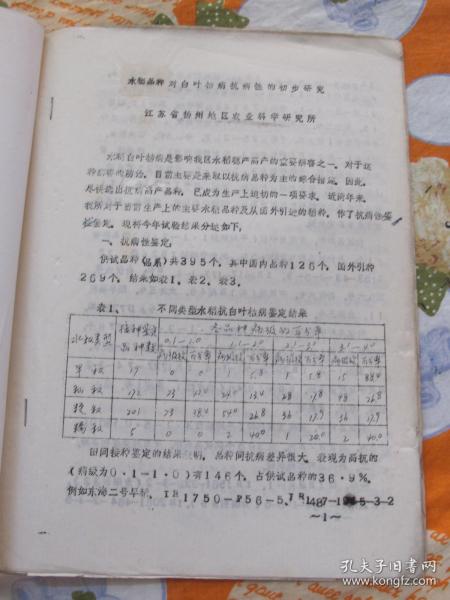 水稻品种对白叶枯病抗病性的初步研究
江苏省扬州地区农业科学研究所
水稻白叶枯病是影响我区水稻稳产高产的重要病害之一，对于这
种病害的防治，目前主要是采取以抗病品种为主的综合措施，因此，
尽快选出抗病高产品种，已成为生产上迫切的一项要求。近两年来，
我所对于当前生产上的主要水稻品种及从国外引进的稻种，作了抗病性鉴
现将今年试验结果分述如下：
一、抗病性鉴定：
供试品种（品系）共395个，其中国内品种126个，国外引种
269个，结果如表1、表2、表3。
表1、 不同类型水稻抗白叶枯病鉴定结果
水稻类型 接种鉴定品种数 各品种病级的百分率
0.1—1.0 1.1—2.0 2.1—3.0 3.1—4.0
病级数 百分率 病级数 百分率 病级数 百分率 病级数 百分率
17 0 0 1 5.8 1 5.8 15
172 23
201 23 36 17.9 36 17.9
5 0 0 2 40.0 1 20.0 2 40.0
田间接种鉴定的结果 品种间抗病差异很大。表现为高抗的
（病级为0·1—1·0）有146个，占供试品种的36·9%，
例如东海二号早籼，IR1750—F56—5、IR1487—1 5—3—2
~1~
孔夫子旧书网
www.kongfz.com